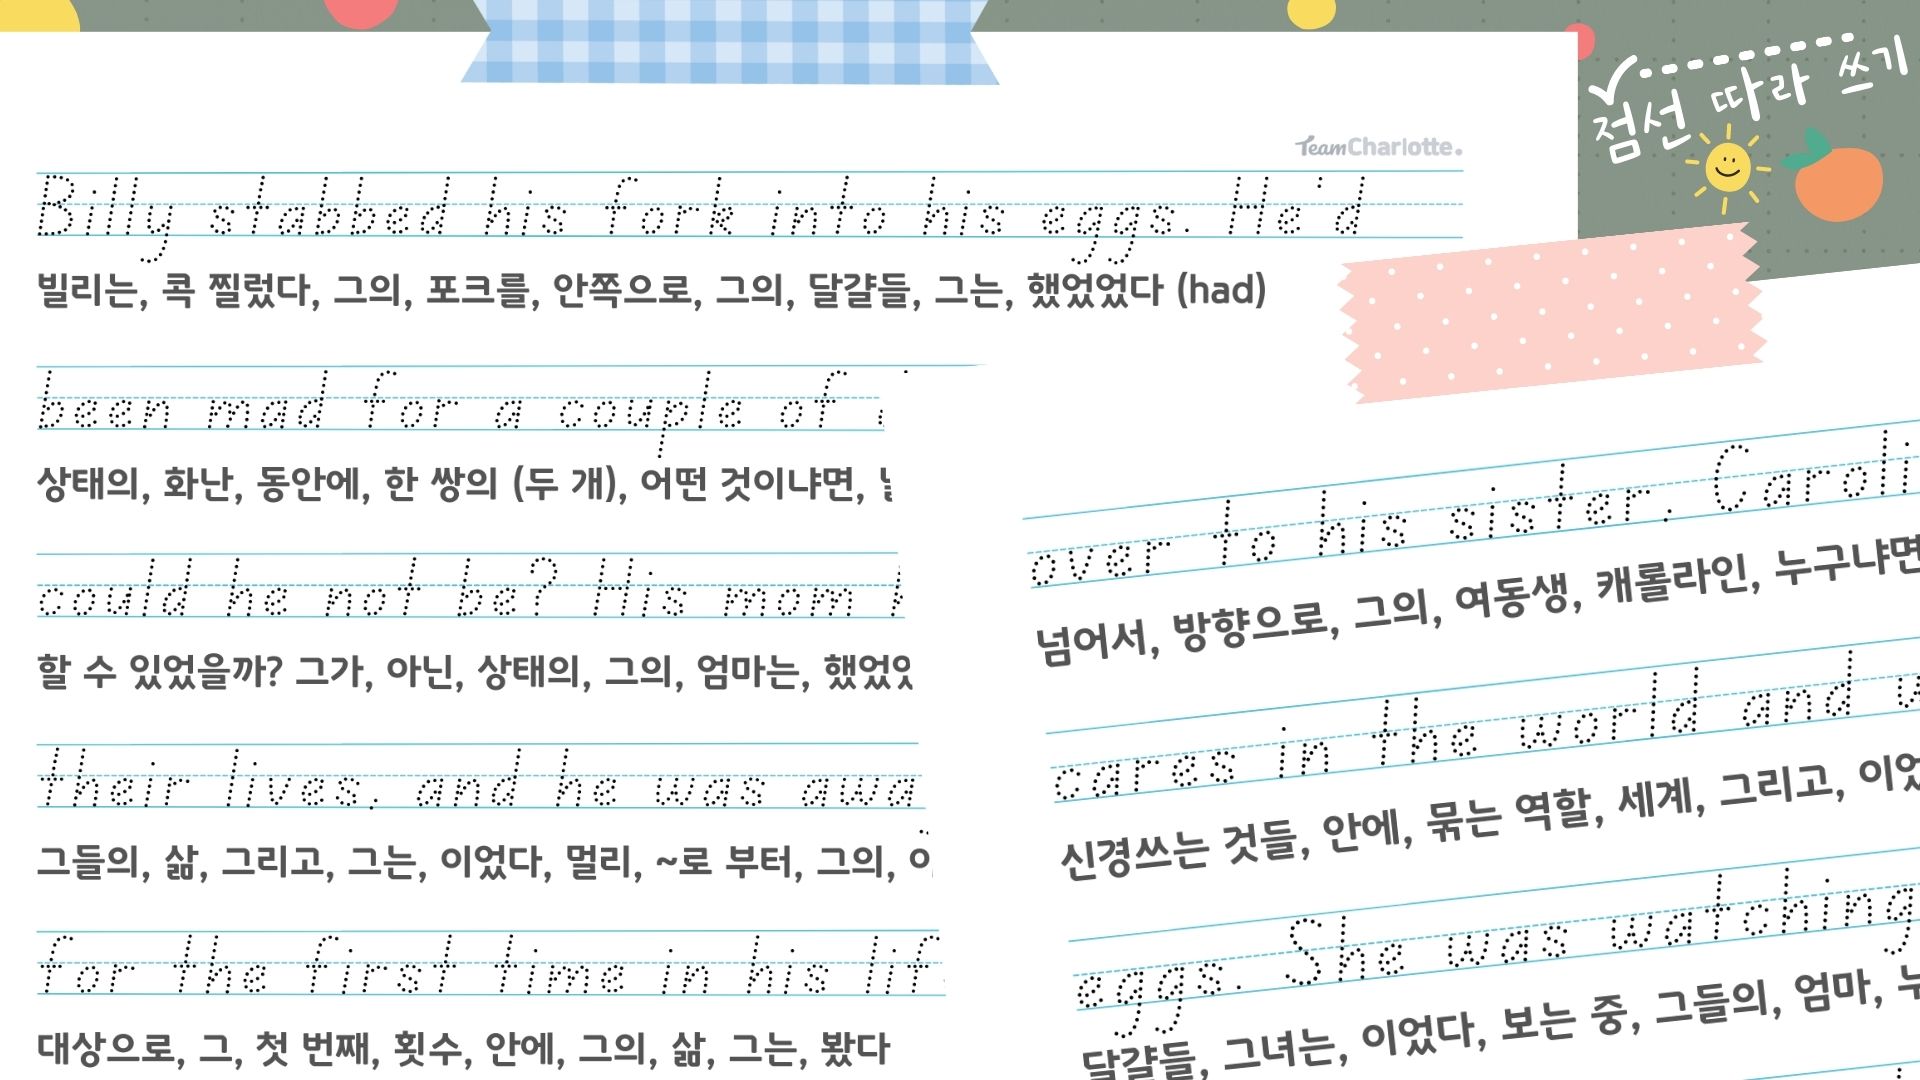 점선 따라 쓰기
TeamCharlotte.
Billy stabbed his fork into his eggs. He'd
빌리는, 콕 찔렀다, 그의, 포크를, 안쪽으로, 그의, 달걀들, 그는, 했었었다 (had)
been mad for a couple of
상태의, 화난, 동안에, 한 쌍의 (두 개), 어떤 것이냐면,
could he not be? His mom
할 수 있었을까? 그가, 아닌, 상태의, 그의, 엄마는,
their lives, and he was awa
그들의, 삶, 그리고, 그는, 이었다, 멀리, ~로 부터, 그의,
for the first time in his lif
대상으로, 그, 첫 번째, 횟수, 안에, 그의, 삶, 그는, 봤다
over to his sister. Caroli
넘어서, 방향으로, 그의, 여동생, 캐롤라인, 누구냐면
cares in the world and
신경쓰는 것들, 안에, 묶는 역할, 세계, 그리고,
eggs. She was watching
달걀들, 그녀는, 이었다, 보는 중, 그들의, 엄마,